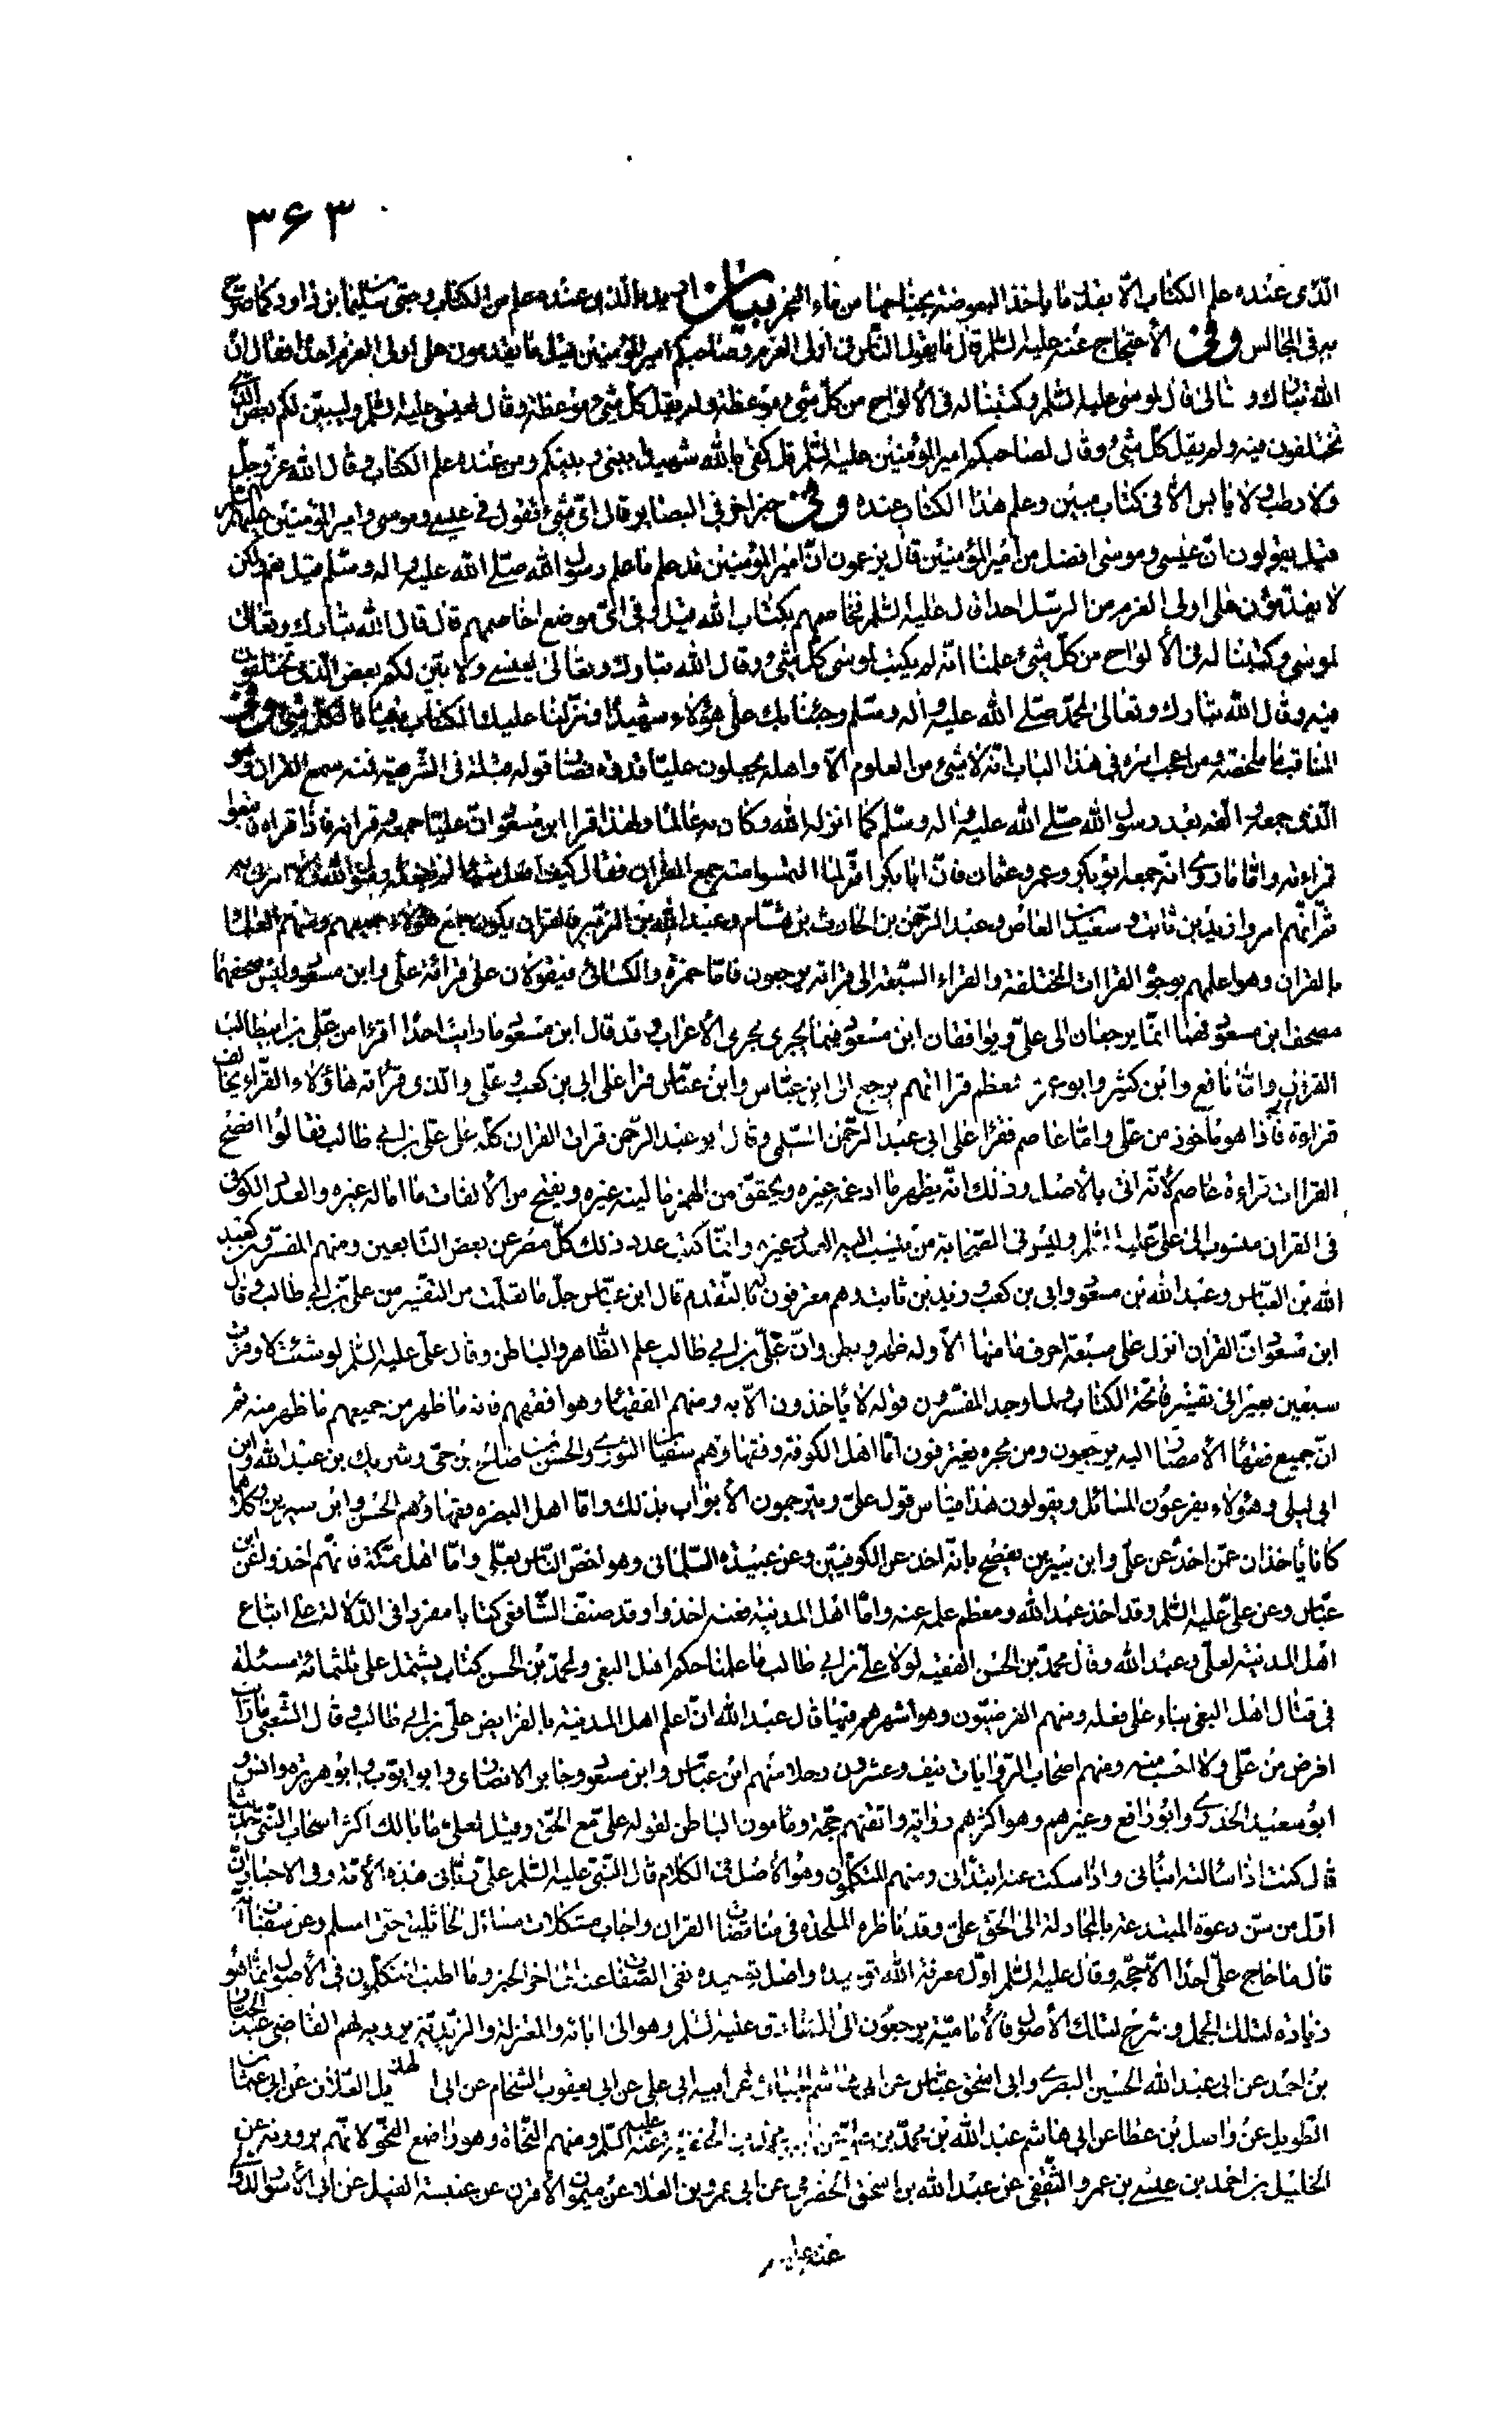 ٣۶٣
الّذی عنده علم الکتاب الّا بقدر ما یاخذ البعوضة بجناحها من ماء البحر بیان الّذی عنده علم من الکتاب وصیّ سلیمان بن داود کما صرّح
به فی المجالس وفی الأحتجاج عنه علیه السّلم قال ما یقول النّاس فی اولی العزم وصاحبکم امیر المؤمنین قیل ما یقدمون علی اولی العزم احدا فقال انّ
الله تبارك وتعالی قال لموسی علیه السّلم وکتبنا له فی الألواح من کلّ شیء موعظة ولم یقل کلّ شیء موعظة وقال لعیسی علیه السّلم ولیبیّن لکم بعض الّذی
تختلفون فیه ولم یقل کلّ شیء وقال لصاحبکم امیر المؤمنین علیه السّلم قل کفی بالله شهیدا بینی وبینکم ومن عنده علم الکتاب وقال الله عزّ وجلّ
ولا رطب ولا یابس الّا فی کتاب مبین وعلم هذا الکتاب عنده وفی خبر اخر فی البصایر قال ایّ شیء تقول فی عیسی وموسی وامیر المؤمنین علیهم السّلم
قیل یقولون انّ عیسی وموسی افضل من امیر المؤمنین قال یزعمون انّ امیر المؤمنین قد علم ما علم رسول الله صلّی الله علیه واله وسلّم قیل نعم ولکن
لا یقدّمون علی اولی العزم من الرسل احدا قال علیه السّلم فخاصمهم بکتاب الله قیل وفی ایّ موضع اخاصمهم قال قال الله تبارك وتعالی
لموسی وکتبنا له فی الألواح من کلّ شیء علمنا انّه لم یکتب لموسی کلّ شیء وقال الله تبارك وتعالی لعیسی ولابیّن لکم بعض الّذی تختلفون
فیه وقال الله تبارك وتعالی لمحمّد صلّی الله علیه واله وسلّم وجئنا بك علی هؤلاء شهیدا ونزّلنا علیك الکتاب تبیانا لکلّ شیء وفی
المناقب ما ملخصه ومن اعجب امره فی هذا الباب انّه لا شیء من العلوم الّا واهله یجعلون علیّا قدوة فصار قوله قبلة فی الشریعة فمنه سمع القران وهو
الّذی جمعه والّفه بعد رسول الله صلّی الله علیه واله وسلّم کما انزله الله وکان به عالما ولهذا قرا ابن مسعود انّ علیّا جمعه وقرانه فاذا قراه فاتبعوا
قراءته وامّا ما روی انّه جمعه ابو بکر وعمر وعثمان فانّ ابا بکر اقرّ لمّا التمسوا منه جمع القران فقال کیف افعل شیئا لم یفعله رسول الله ولا امرنی به
ثمّ انّهم امروا زید بن ثابت وسعید بن العاص وعبد الرّحمن بن الحارث بن هشام وعبد الله بن الزّبیر فالقران یکون جمع هؤلاء جمیعهم ومنهم العلماء
بالقران وهو اعلمهم بوجوه القراات المختلفة والقراء السّبعة الی قراءته یرجعون فامّا حمزة والکسائی فیقولان علی قرائة علی وابن مسعود ولیس مصحفهما
مصحف ابن مسعود فهما انّما یرجعان الی علیّ ویوافقان ابن مسعود فیما یجری مجری الأعراب وقد قال ابن مسعود ما رایت احدا اقرا من علی بن ابیطالب
القران وامّا نافع وابن کثیر وابو عمر فمعظم قراءاتهم یرجع الی ابن عبّاس وابن عبّاس قرا علی ابی بن کعب وعلی والّذی قرأته هاؤلاء القرّاء یخالف
قراءة ابی فاذا هو ماخوذ من علی وامّا عاصم فقرا علی ابی عبد الرّحمن السّلمی وقال ابو عبد الرّحمن قرات القران کلّه علی علی بن ابی طالب فقالوا افصح
القراات قراءة عاصم لأنّه اتی بالأصل وذلك انّه یظهر ما ادغمه غیره ویحقّق من الهمز ما لینه غیره ویفتح من الألفات ما اماله غیره والعدد الکوفی
فی القران منسوب الی علیّ علیه السّلم ولیس فی الصّحابة من ینسب الیه العدد غیره وانّما کتب عدد ذلك کلّ مصر عن بعض التّابعین ومنهم المفسّرون کعبد
الله بن العبّاس وعبد الله بن مسعود وابی بن کعب وزید بن ثابت وهم معترفون له بالتّقدم قال ابن عبّاس جلّ ما تعلّمت من التفسیر من علیّ بن ابی طالب وقال
ابن مسعود انّ القران انزل علی سبعة احرف ما منها الّا وله ظهر وبطن وانّ علیّ بن ابی طالب علم الظّاهر والباطن وقال علیّ علیه السّلم لو شئت لاوقرت
سبعین بعیرا فی تفسیر فاتحة الکتاب ولما وجد المفسّرون قوله لا یأخذون الّا به ومنهم الفقهاء وهو افقههم فانه ما ظهر من جمیعهم ما ظهر منه ثمّ
انّ جمیع فقهاء الأمصار الیه یرجعون ومن بحره یغترفون امّا اهل الکوفة وفقهاؤهم سفیان الثوری والحسن بن صالح بن حیّ وشریك بن عبد الله وابن
ابی لیلی وهؤلاء یفرعون المسائل ویقولون هذا قیاس قول علیّ ویترجمون الأبواب بذلك وامّا اهل البصره فقهاؤهم الحسن وابن سیرین وکلاهما
کانا یأخذان عمّن اخذ عن علی وابن سیرین یفصح بانّه اخذ عن الکوفیّین وعن عبیدة السّلمانی وهو اخصّ النّاس بعلی وامّا اهل مکّة فانّهم اخذوا عن ابن
عبّاس وعن علیّ علیه السّلم وقد اخذ عبد الله ومعظم علمه عنه وامّا اهل المدینة فعنه اخذوا وقد صنّف الشّافعی کتابا مفردا فی الدّلالة علی اتباع
اهل المدینة لعلی وعبد الله وقال محمّد بن الحسن الفقیه لولا علیّ بن ابی طالب ما علمنا حکم اهل البغی ولمحمّد بن الحسن کتاب یشتمل علی ثلثمائة مسئلة
فی قتال اهل البغی بناء علی فعله ومنهم الفرضیّون وهو اشهرهم فیها قال عبد الله انّ اعلم اهل المدینة بالفرایض علی بن ابی طالب وقال الشّعبی ما رایت
افرض من علی ولا احسب منه ومنهم اصحاب الرّوایات نیف وعشرون رجلا منهم ابن عبّاس وابن مسعود وجابر الانصاری وابو ایّوب وابو هریره وانس
ابو سعید الخدری وابو رافع وغیرهم وهو اکثرهم روایة واتقنهم حجّة ومامون الباطن لقوله علی مع الحقّ وقیل لعلیّ ما بالك اکثر اصحاب النّبی حدیثا
قال کنت اذا سالته انبأنی واذا سکت عنه ابتدانی ومنهم المتکلّمون وهو الأصل فی الکلام قال النّبیّ علیه السّلم علیّ ربّانی هذه الأمّة وفی الاخبار انّ
اوّل من سنّ دعوة المبتدعة بالمجادلة الی الحقّ علی وقد ناظره الملحدة فی مناقضات القران واجاب مشکلات مسائل الجاثلیق حتی اسلم وعن سفیان انّه
قال ما حاجّ علیّ احدا الّا حجّه وقال علیه السّلم اوّل معرفة الله توحیده واصل توحیده نفی الصّفات عنه الی اخر الخبر وما اطنب المتکلّمون فی الأصول انّما هو
زیادة لتلك الجمل وشرح لتلك الأصول فالأمامیّة یرجعون الی الصّادق علیه السّلم وهو الی ابائه والمعتزلة والزّیدیّة یرویه لهم القاضی عبد الجبّار
بن احمد عن ابی عبد الله الحسین البصری وابی اسحق عبّاس عن ابی هاشم الجبّائی عن ابیه ابی علی عن ابی یعقوب الشّحام عن ابی الهذیل العلّاف عن ابی عثمان
الطّویل عن واصل بن عطا عن ابی هاشم عبد الله بن محمّد بن علی عن ابیه محمّد بن الحنفیّة وعنه علیه السّلم ومنهم النّحاة وهو واضع النّحو لانّهم یروونه عن
الخلیل بن احمد بن عیسی بن عمرو الثّقفی عن عبد الله بن اسحق الحضرمی عن ابی عمرو بن العلاء عن میمون الأفرن عن عنبسة الفیل عن ابی الأسود الدّئلی
عنه علیه